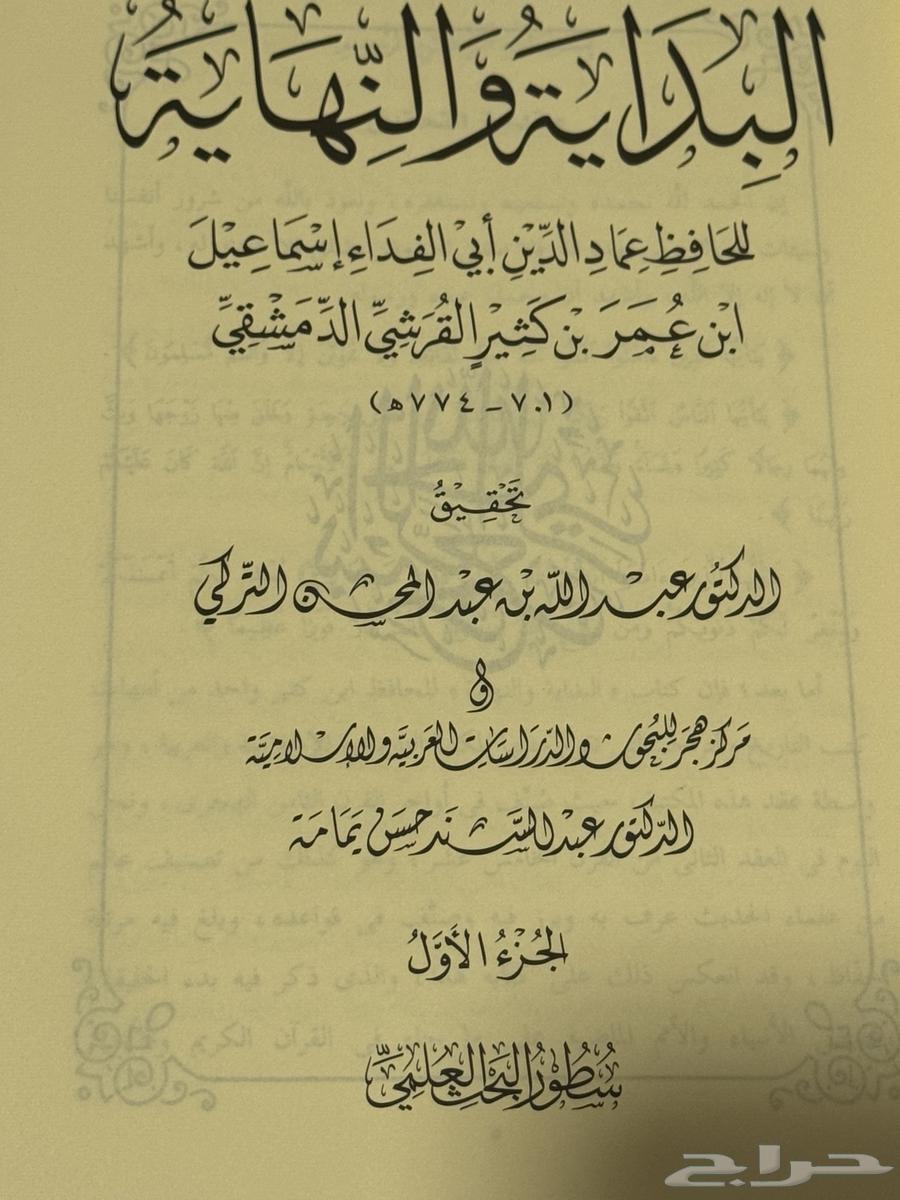 البِدَايَةُ وَالنِّهَايَةُ
لِلحَافِظِ عِمَادِ الدِّينِ أَبِي الفِدَاءِ إِسْمَاعِيْلَ
ابْنِ عُمَرَ بْنِ كَثِيْرٍ القُرَشِيِّ الدِّمَشْقِيِّ
(٧٠١ - ٧٧٤ هـ)
تَحْقِيْقُ
الدكتور عبد الله بن عبد المحسن التركي
و
مركز هجر للبحوث والدراسات العربية والإسلامية
الدكتور عبد السند حسن يمامة
الجُزْءُ الأَوَّلُ
سُطُورُ البَحْثِ العِلْمِيِّ
حراج